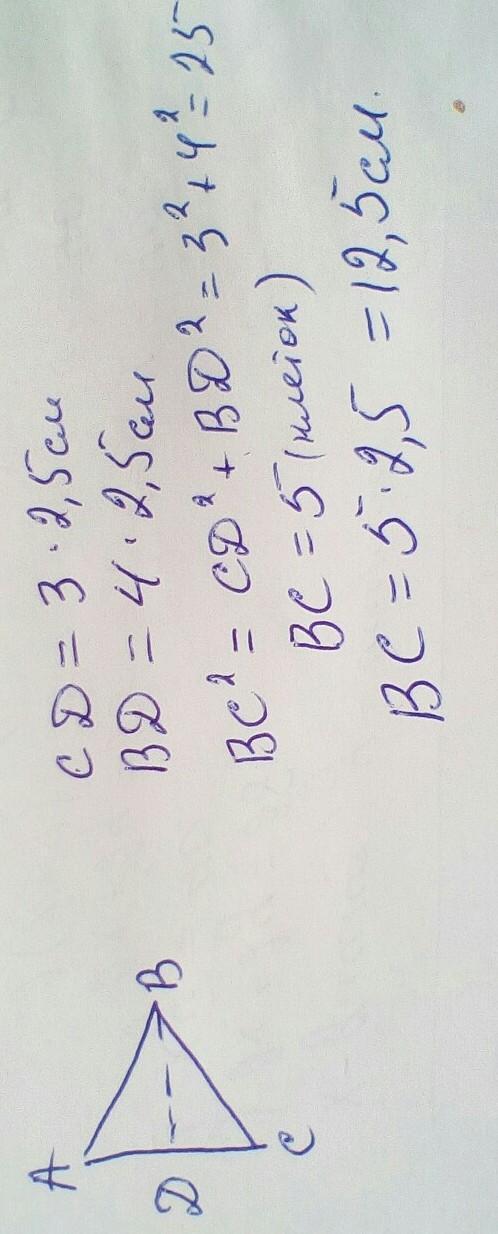 A
B
D
C
CD = 3 · 2,5 см
BD = 4 · 2,5 см
BC² = CD² + BD² = 3² + 4² = 25
BC = 5 (клеток)
BC = 5 · 2,5 = 12,5 см.